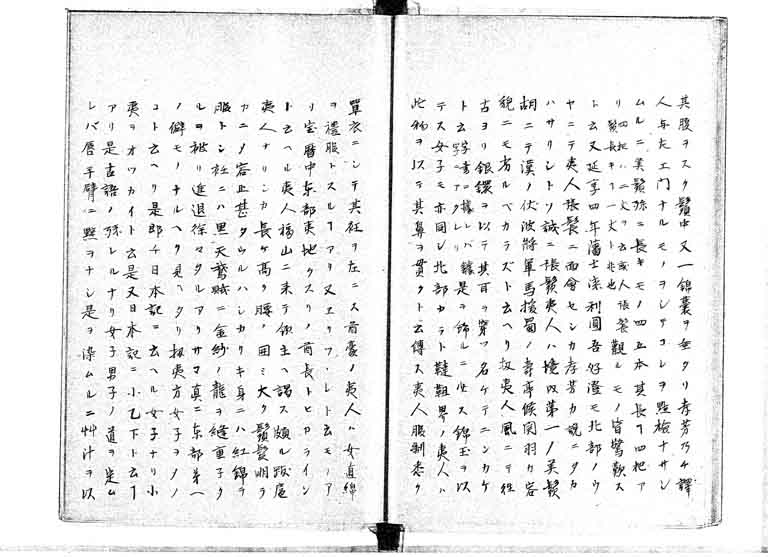 其腹ヲスク鬚中又一錦囊ヲ出タリ孝芳乃チ譯
人与左エ門ナルモノヲシテコレヲ點檢ナサシ
ムルニ美鬚殊ニ長キモノ四五本其長丁四把ア
リ 観ルモノ皆驚歎ス
ト云又延享四年藩士 利圓吾好澄モ北部ノウ
ヤニテ夷人張髪ニ面會セシカ孝芳カ説ニタカ
ハサリシトソ誠ニ張鬚夷人ハ境内第一ノ美鬚
胡ニテ漢ノ伏波將軍馬援蜀ノ壽亭候関羽カ容
貌ニモ劣ルベカラズト云ヘリ扨夷人風ニテ往
古ヨリ銀鐶ヲ以テ其耳ヲ穿ツ名ケテニンカケ
ト云 是ヲ飾ルニ必ス錦玉ヲ以
テス女子モ亦同シ北部カラト韃靼界ノ夷人ハ
此物ヲ以テ其鼻ヲ貫クト云傳ス夷人服制悉ク
單衣ニシテ其衽ヲ左ニス酋豪ノ夷人ハ女直綿
ヲ禮服トスルアリ又エリフ・レト云モノア
リ宝暦中东部夷地クスリノ酋長トヒカライン
ト云ヘル夷人福山ニ来テ領主ヘ謁ス頗ル跋扈
夷人ナリシカ長ケ高ク腰ノ囲ミ大ク鬚髪明ラ
カニ〆容止甚タウルハシカリキ身ニハ紅錦ヲ
服トシ社ニハ黒天鵞絨ニ金紗ノ龍ヲ縫重子タ
ルヲ被リ進退徐々タルアリサマ真ニ东部第一
ノ僻モノナルヘク見ヘタリ扨夷方女子ヲメノ
コト云ヘリ是即チ日本記ニ云ヘル女子ナリ小
夷ヲオワカイト云是又日本記ニ小乙下ト云丁
アリ是古語ノ残レルナリ女子男子ノ道ヲ定ム
レバ唇手臂ニ黥ヲナシ是ヲ染ムルニ艸汁ヲ以